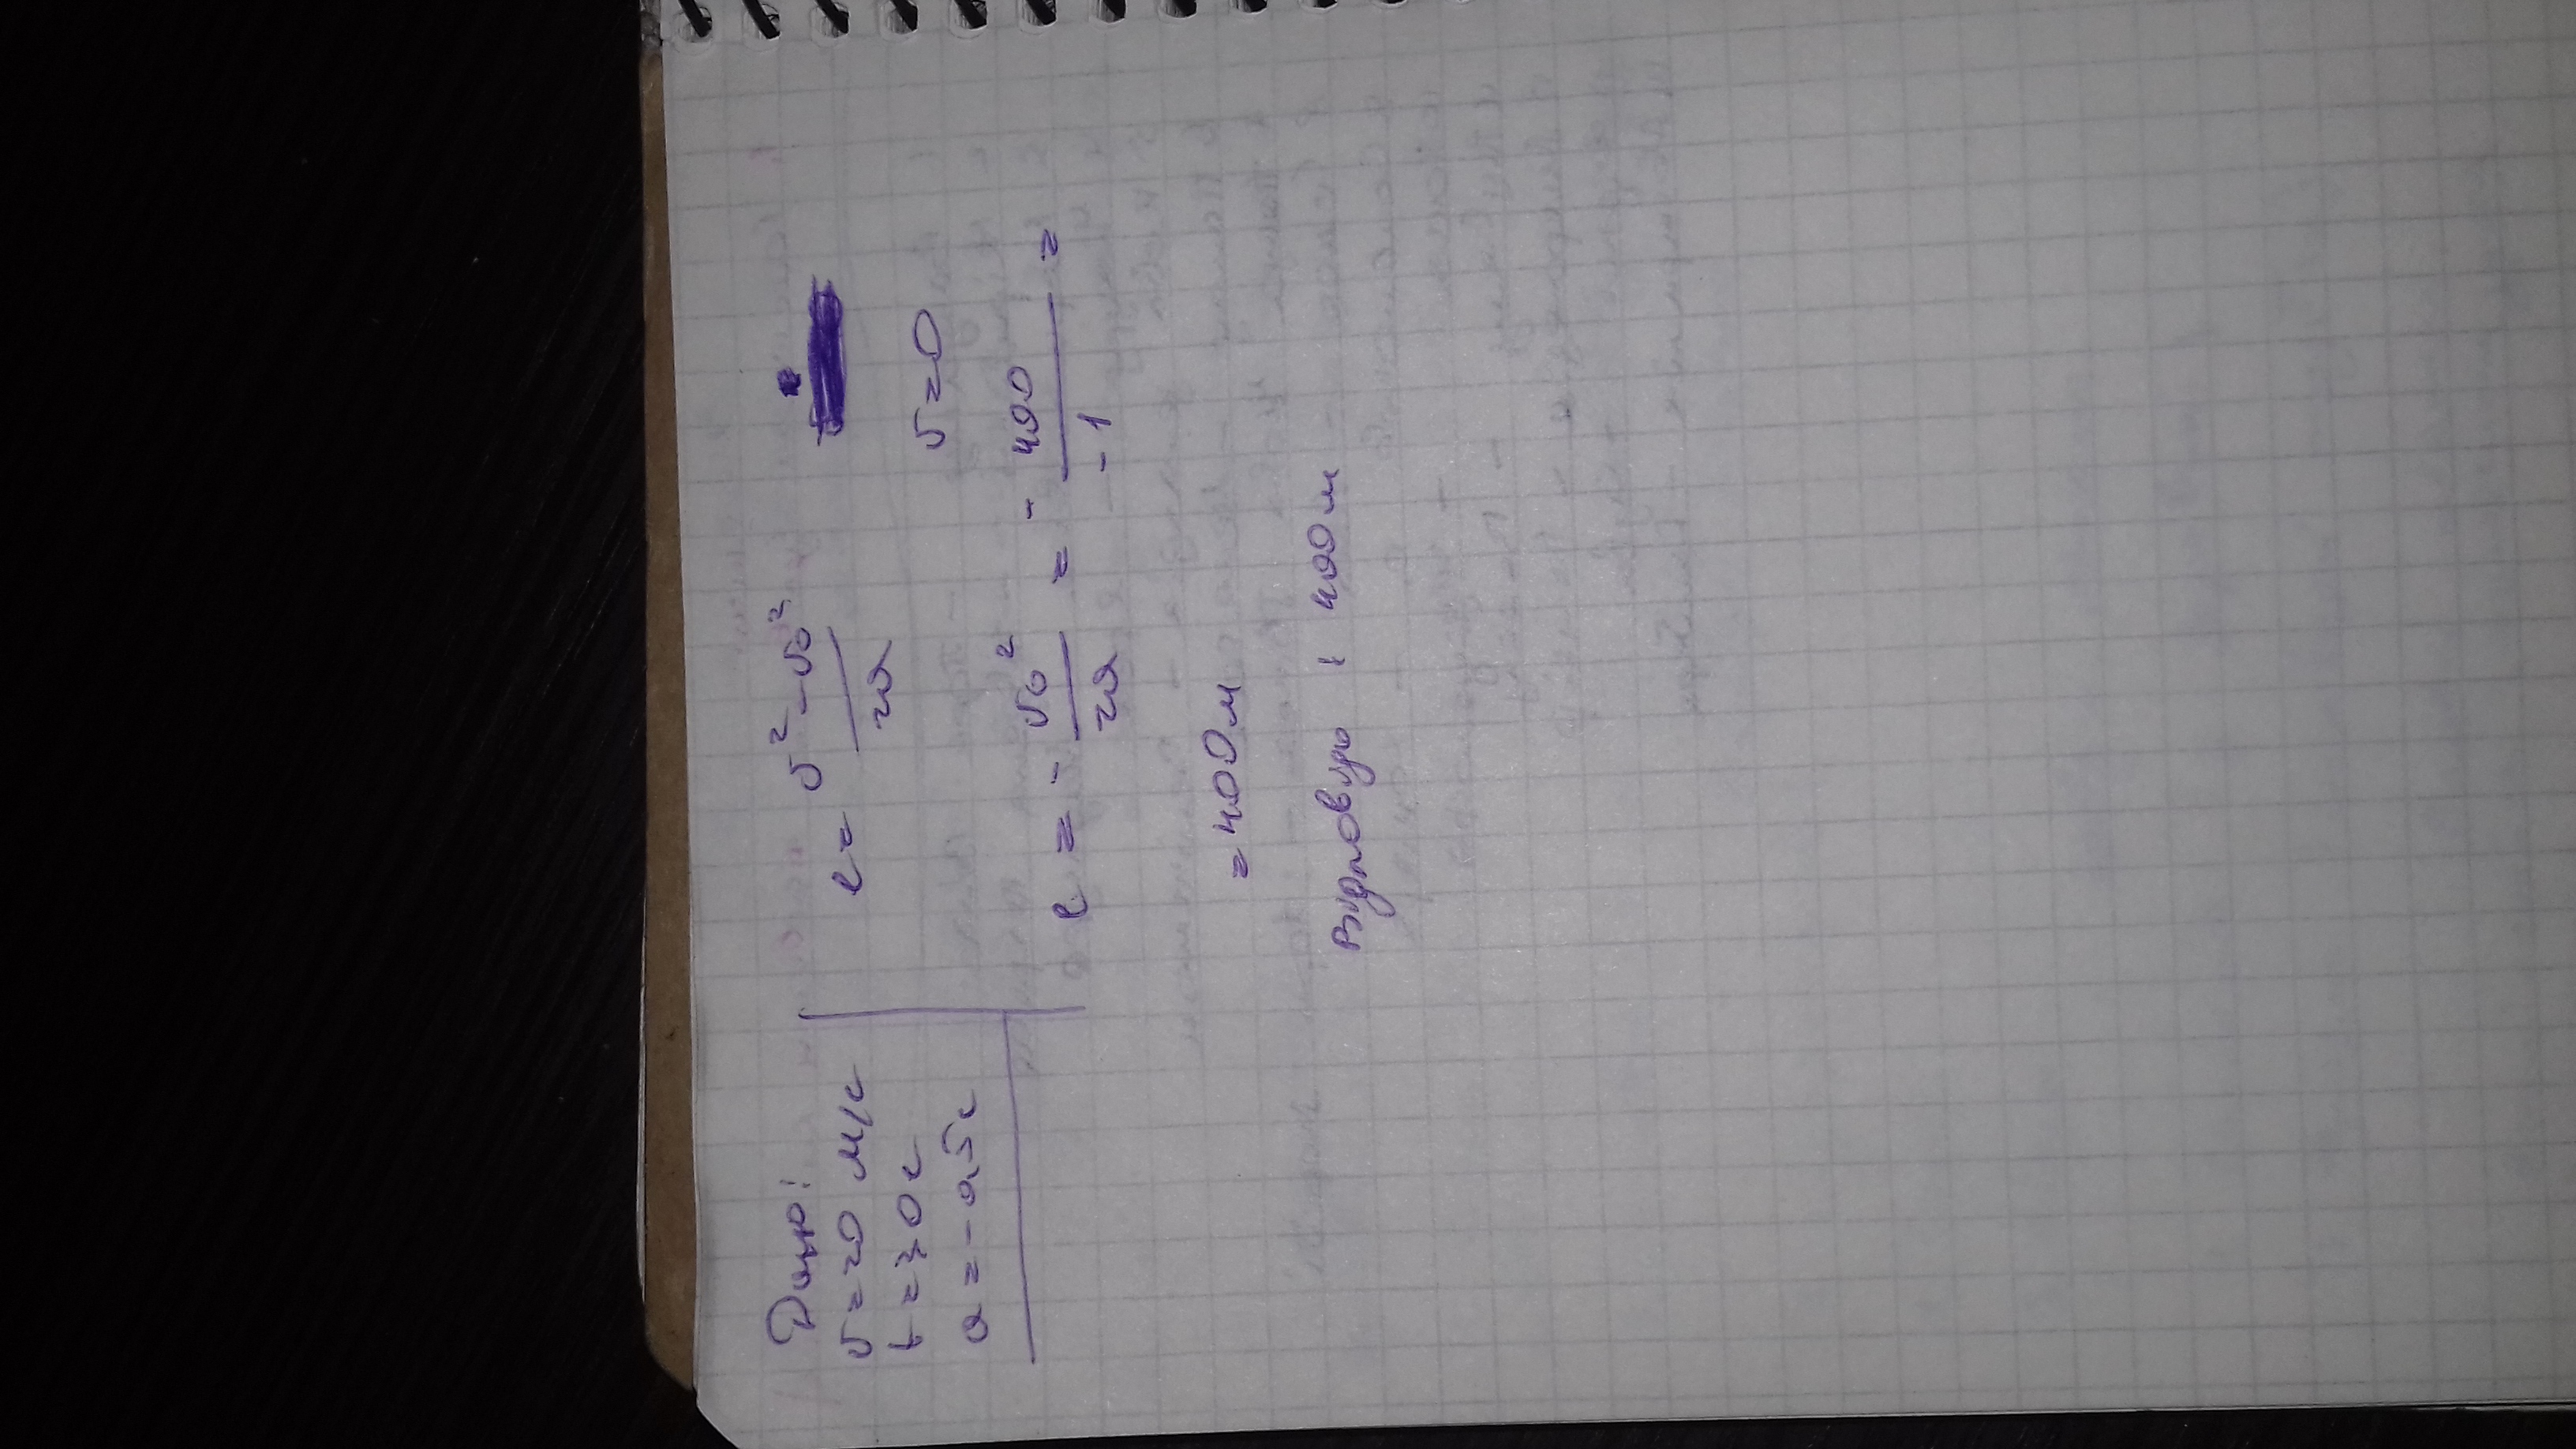 Дано:
v = 20 м/с
t = 30 с
a = -0,5 с
l = v² - v₀² / 2a
v = 0
l = - v₀² / 2a = - 400 / -1 =
= 400 м
Відповідь: 400 м